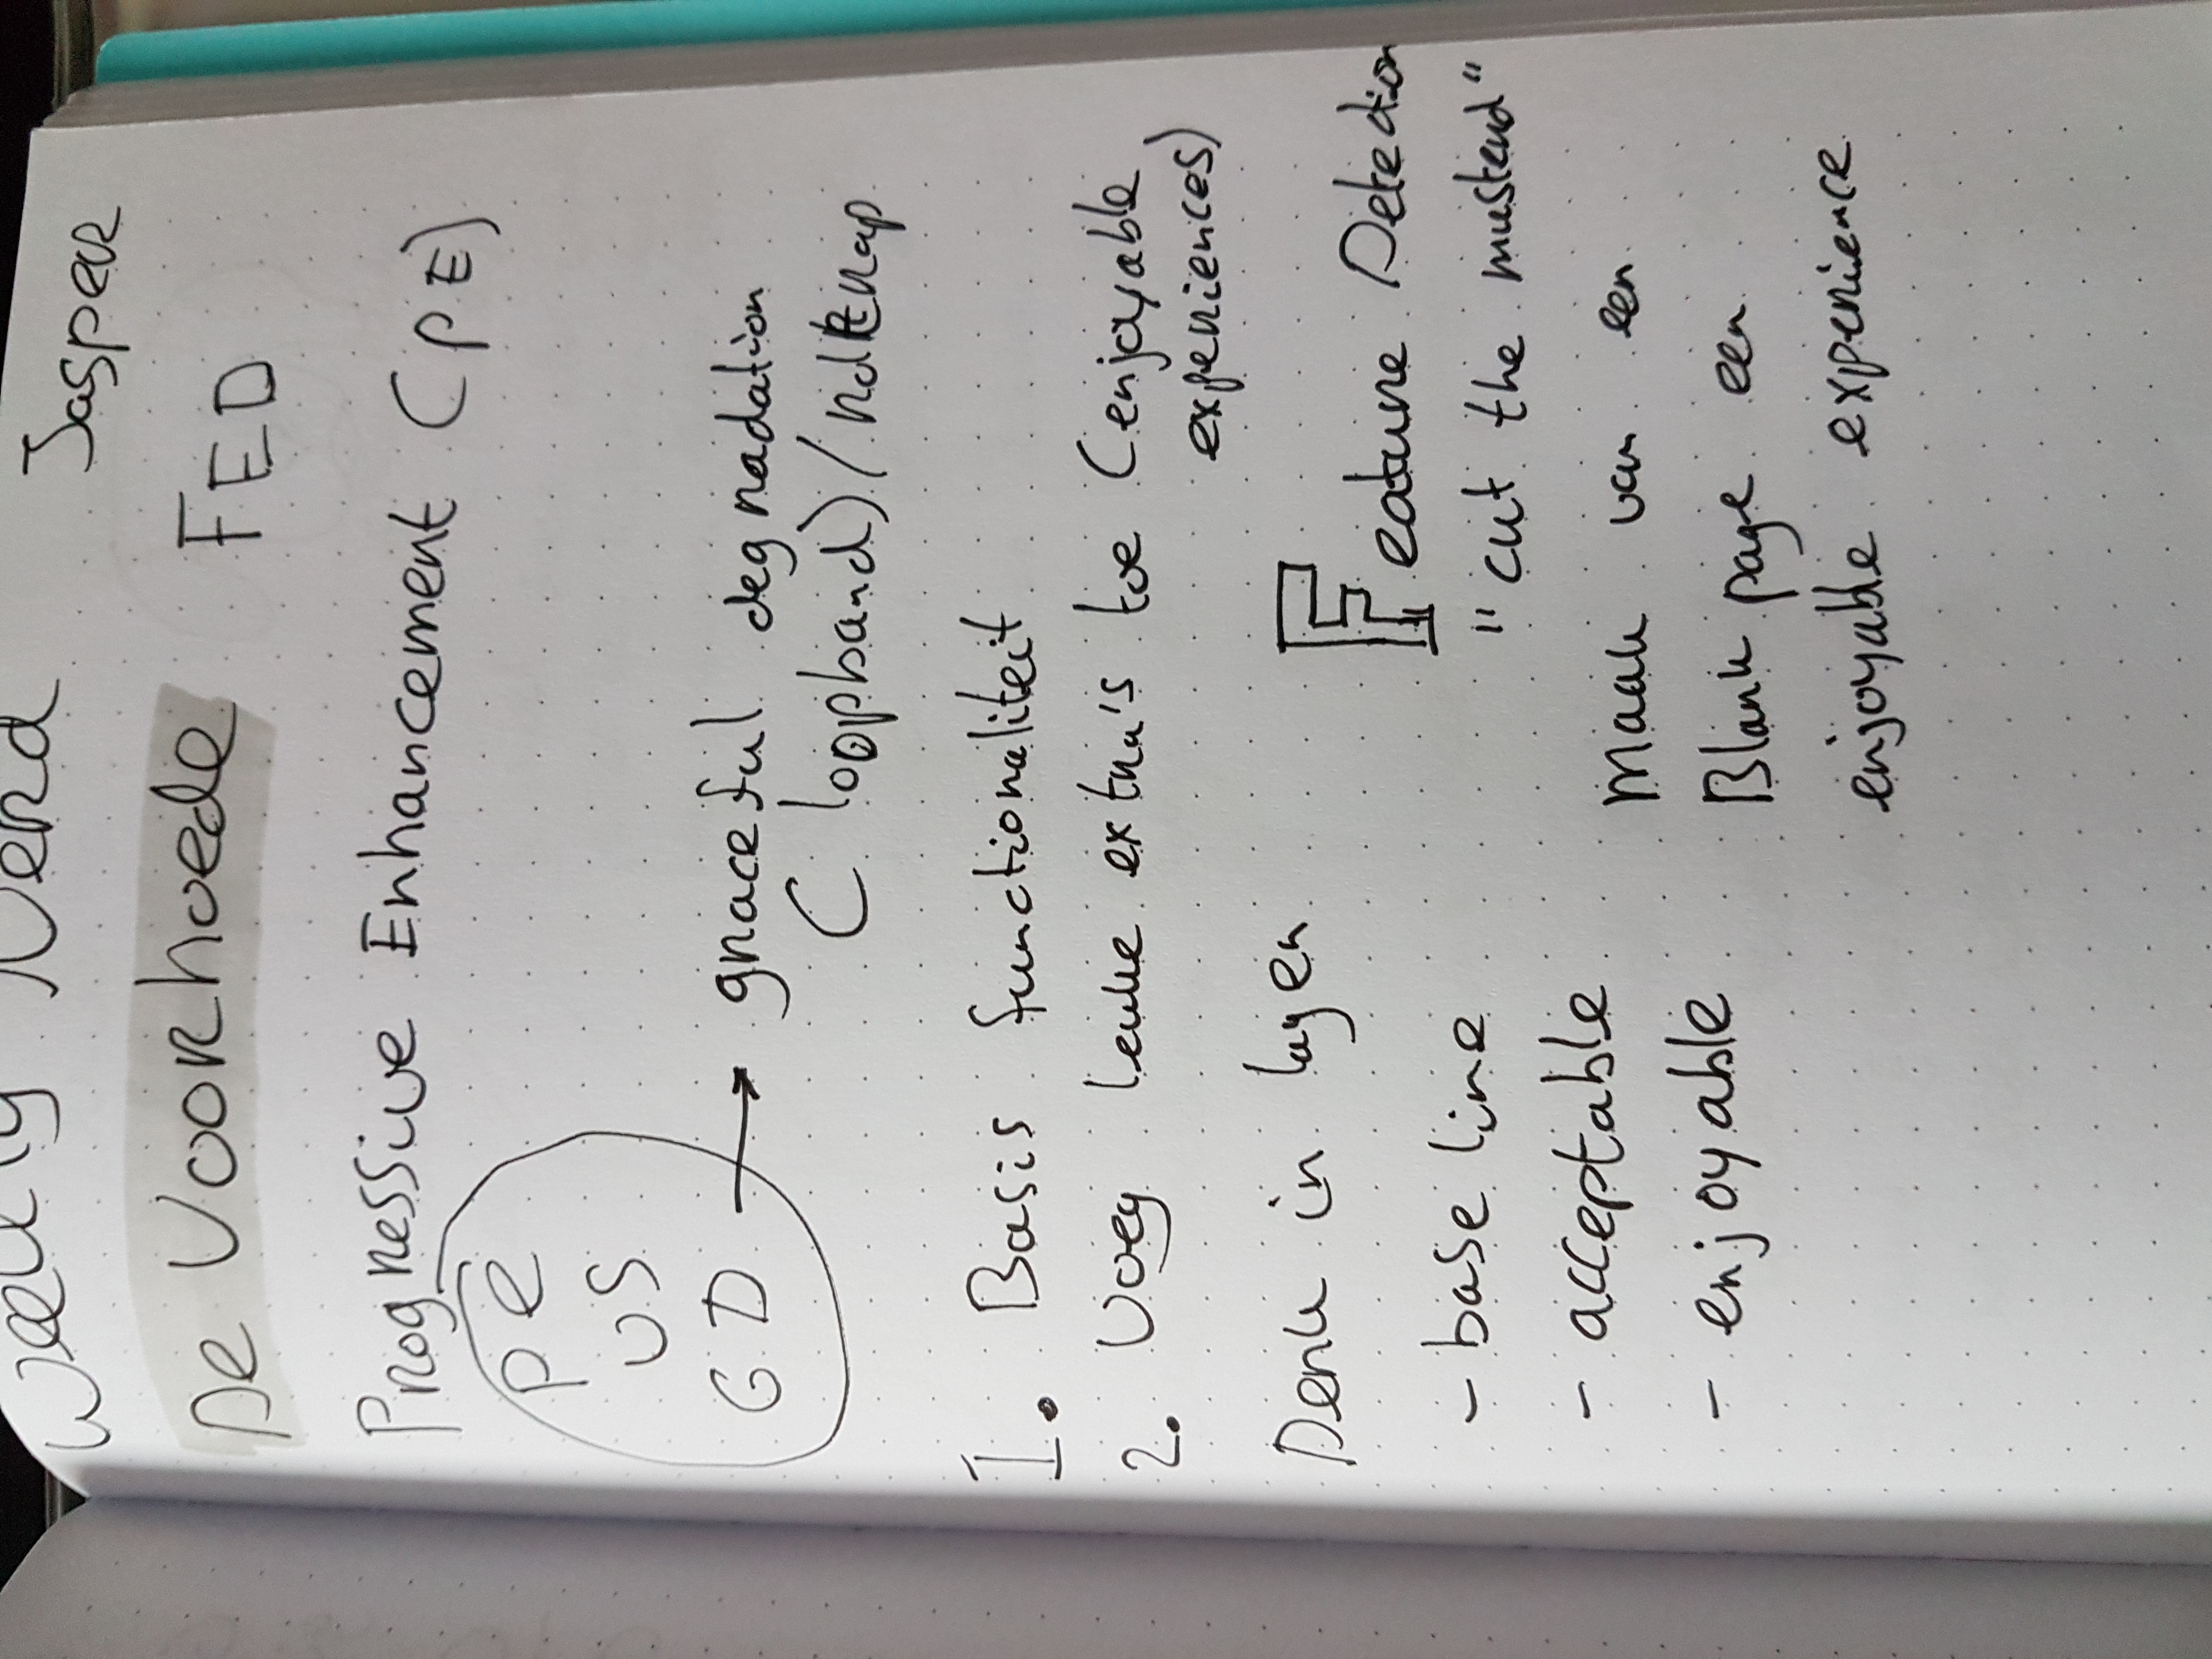 Weekly Nerd Jasper
De Voorhoede FED
Progressive Enhancement (PE)
PE
vs
GD → graceful degradation
(loopband) / roltrap
1. Basis functionaliteit
2. Voeg leuke extra's toe (enjoyable
experiences)
Denk in lagen
- base line
- acceptable
- enjoyable
Feature Detection
"cut the musterd"
Maak van een
Blank page een
enjoyable experience